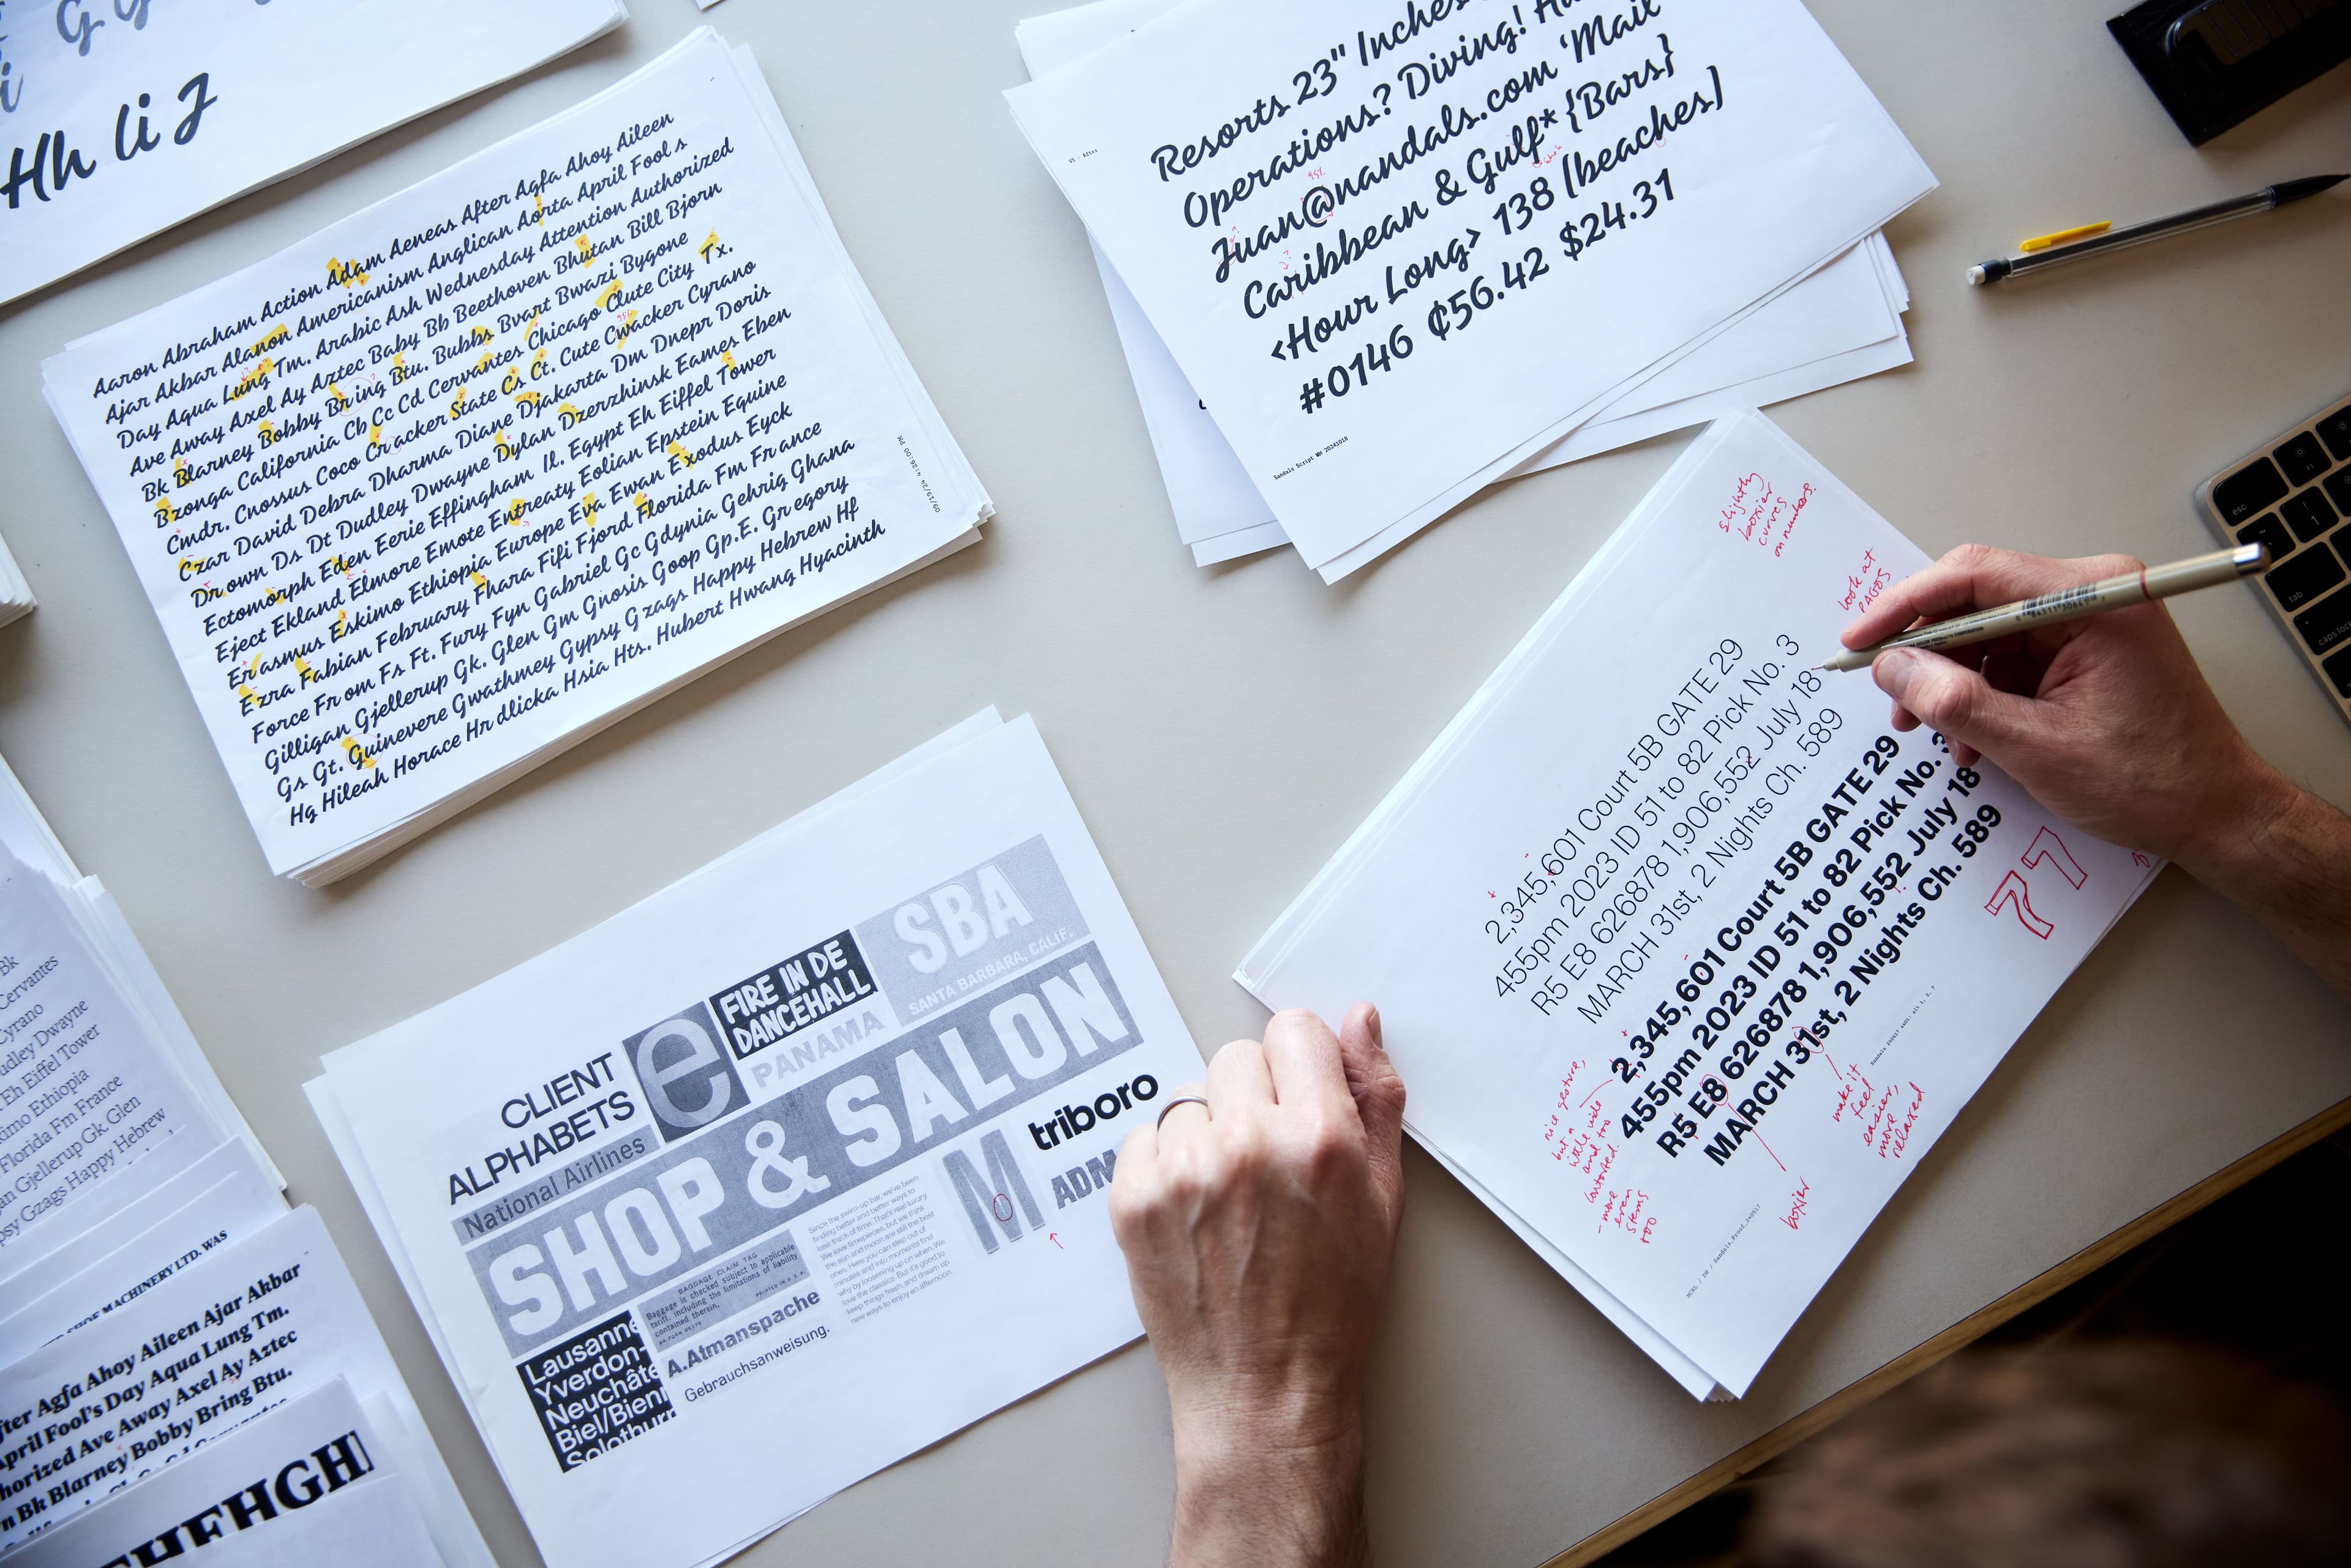 G G
i
Hh Ii J
Aaron Abraham Action Adam Aeneas After Agfa Ahoy Aileen
Ajar Akbar Alanon Americanism Anglican Aorta April Fool s
Day Aqua Lung Tm. Arabic Ash Wednesday Attention Authorized
Ave Away Axel Ay Aztec Baby Bb Beethoven Bhutan Bill Bjorn
Bk Blarney Bobby Br ing Btu. Bubbs Bvart Bwazi Bygone
Bzonga California Cb Cc Cd Cervantes Chicago Clute City Tx.
Cmdr. Cnossus Coco Cr acker State Cs Ct. Cute Cwacker Cyrano
Czar David Debra Dharma Diane Djakarta Dm Dnepr Doris
Dr own Ds Dt Dudley Dwayne Dylan Dzerzhinsk Eames Eben
Ectomorph Eden Eerie Effingham Il. Egypt Eh Eiffel Tower
Eject Ekland Elmore Emote Entreaty Eolian Epstein Equine
Er asmus Eskimo Ethiopia Europe Eva Ewan Exodus Eyck
Ezra Fabian February Fhara Fifi Fjord Florida Fm Fr ance
Force Fr om Fs Ft. Fury Fyn Gabriel Gc Gdynia Gehrig Ghana
Gilligan Gjellerup Gk. Glen Gm Gnosis Goop Gp.E. Gr egory
Gs Gt. Guinevere Gwathmey Gypsy Gzags Happy Hebrew Hf
Hg Hileah Horace Hr dlicka Hsia Hts. Hubert Hwang Hyacinth
95%
09/19/24 4:26:00 PM
Resorts 23" Inches
Operations? Diving!
Juan@nandals.com ‘Mail
Caribbean & Gulf* {Bars}
<Hour Long> 138 [beaches]
#0146 ¢56.42 $24.31
95%
Sandals Script MH 20241018
slightly
boxier
curves
on numbers.
look at
PAGOS
2,345,601 Court 5B GATE 29
455pm 2023 ID 51 to 82 Pick No. 3
R5 E8 626878 1,906,552 July 18
MARCH 31st, 2 Nights Ch. 589
2,345,601 Court 5B GATE 29
455pm 2023 ID 51 to 82 Pick No. 3
R5 E8 626878 1,906,552 July 18
MARCH 31st, 2 Nights Ch. 589
77
nice gesture,
but a
little wide
and too
contorted.
- more
even
stems
too
make it
feel
easier,
more
relaxed
boxier
esc
tab
caps lock
!
1
CLIENT
ALPHABETS
e
FIRE IN DE
DANCEHALL
PANAMA
SBA
SANTA BARBARA, CALIF.
National Airlines
SHOP & SALON
M
triboro
ADM
BAGGAGE CLAIM TAG
Baggage is checked subject to applicable
tariff, including the limitations of liability
contained therein.
Since the swim-up bar, we've been
finding better and better ways to
lose track of time. That's real luxury.
We love timepieces, but we think
the sun and moon are still the best
ones. Here you can step out of
minutes and into moments find
why by loosening up on when. We
love the classics. But it's good to
keep things fresh, and dream up
new ways to enjoy an afternoon.
A.Atmanspache
Gebrauchsanweisung.
Lausanne
Yverdon-
Neuchâte
Biel/Bien
Solothur
Bk
Cervantes
Cyrano
udley Dwayne
Eh Eiffel Tower
kimo Ethiopia
Florida Fm France
an Gjellerup Gk. Glen
psy Gzags Happy Hebrew
SHOE MACHINERY LTD. WAS
fter Agfa Ahoy Aileen Ajar Akbar
April Fool's Day Aqua Lung Tm.
horized Ave Away Axel Ay Aztec
n Bk Blarney Bobby Bring Btu.
EHFHGH